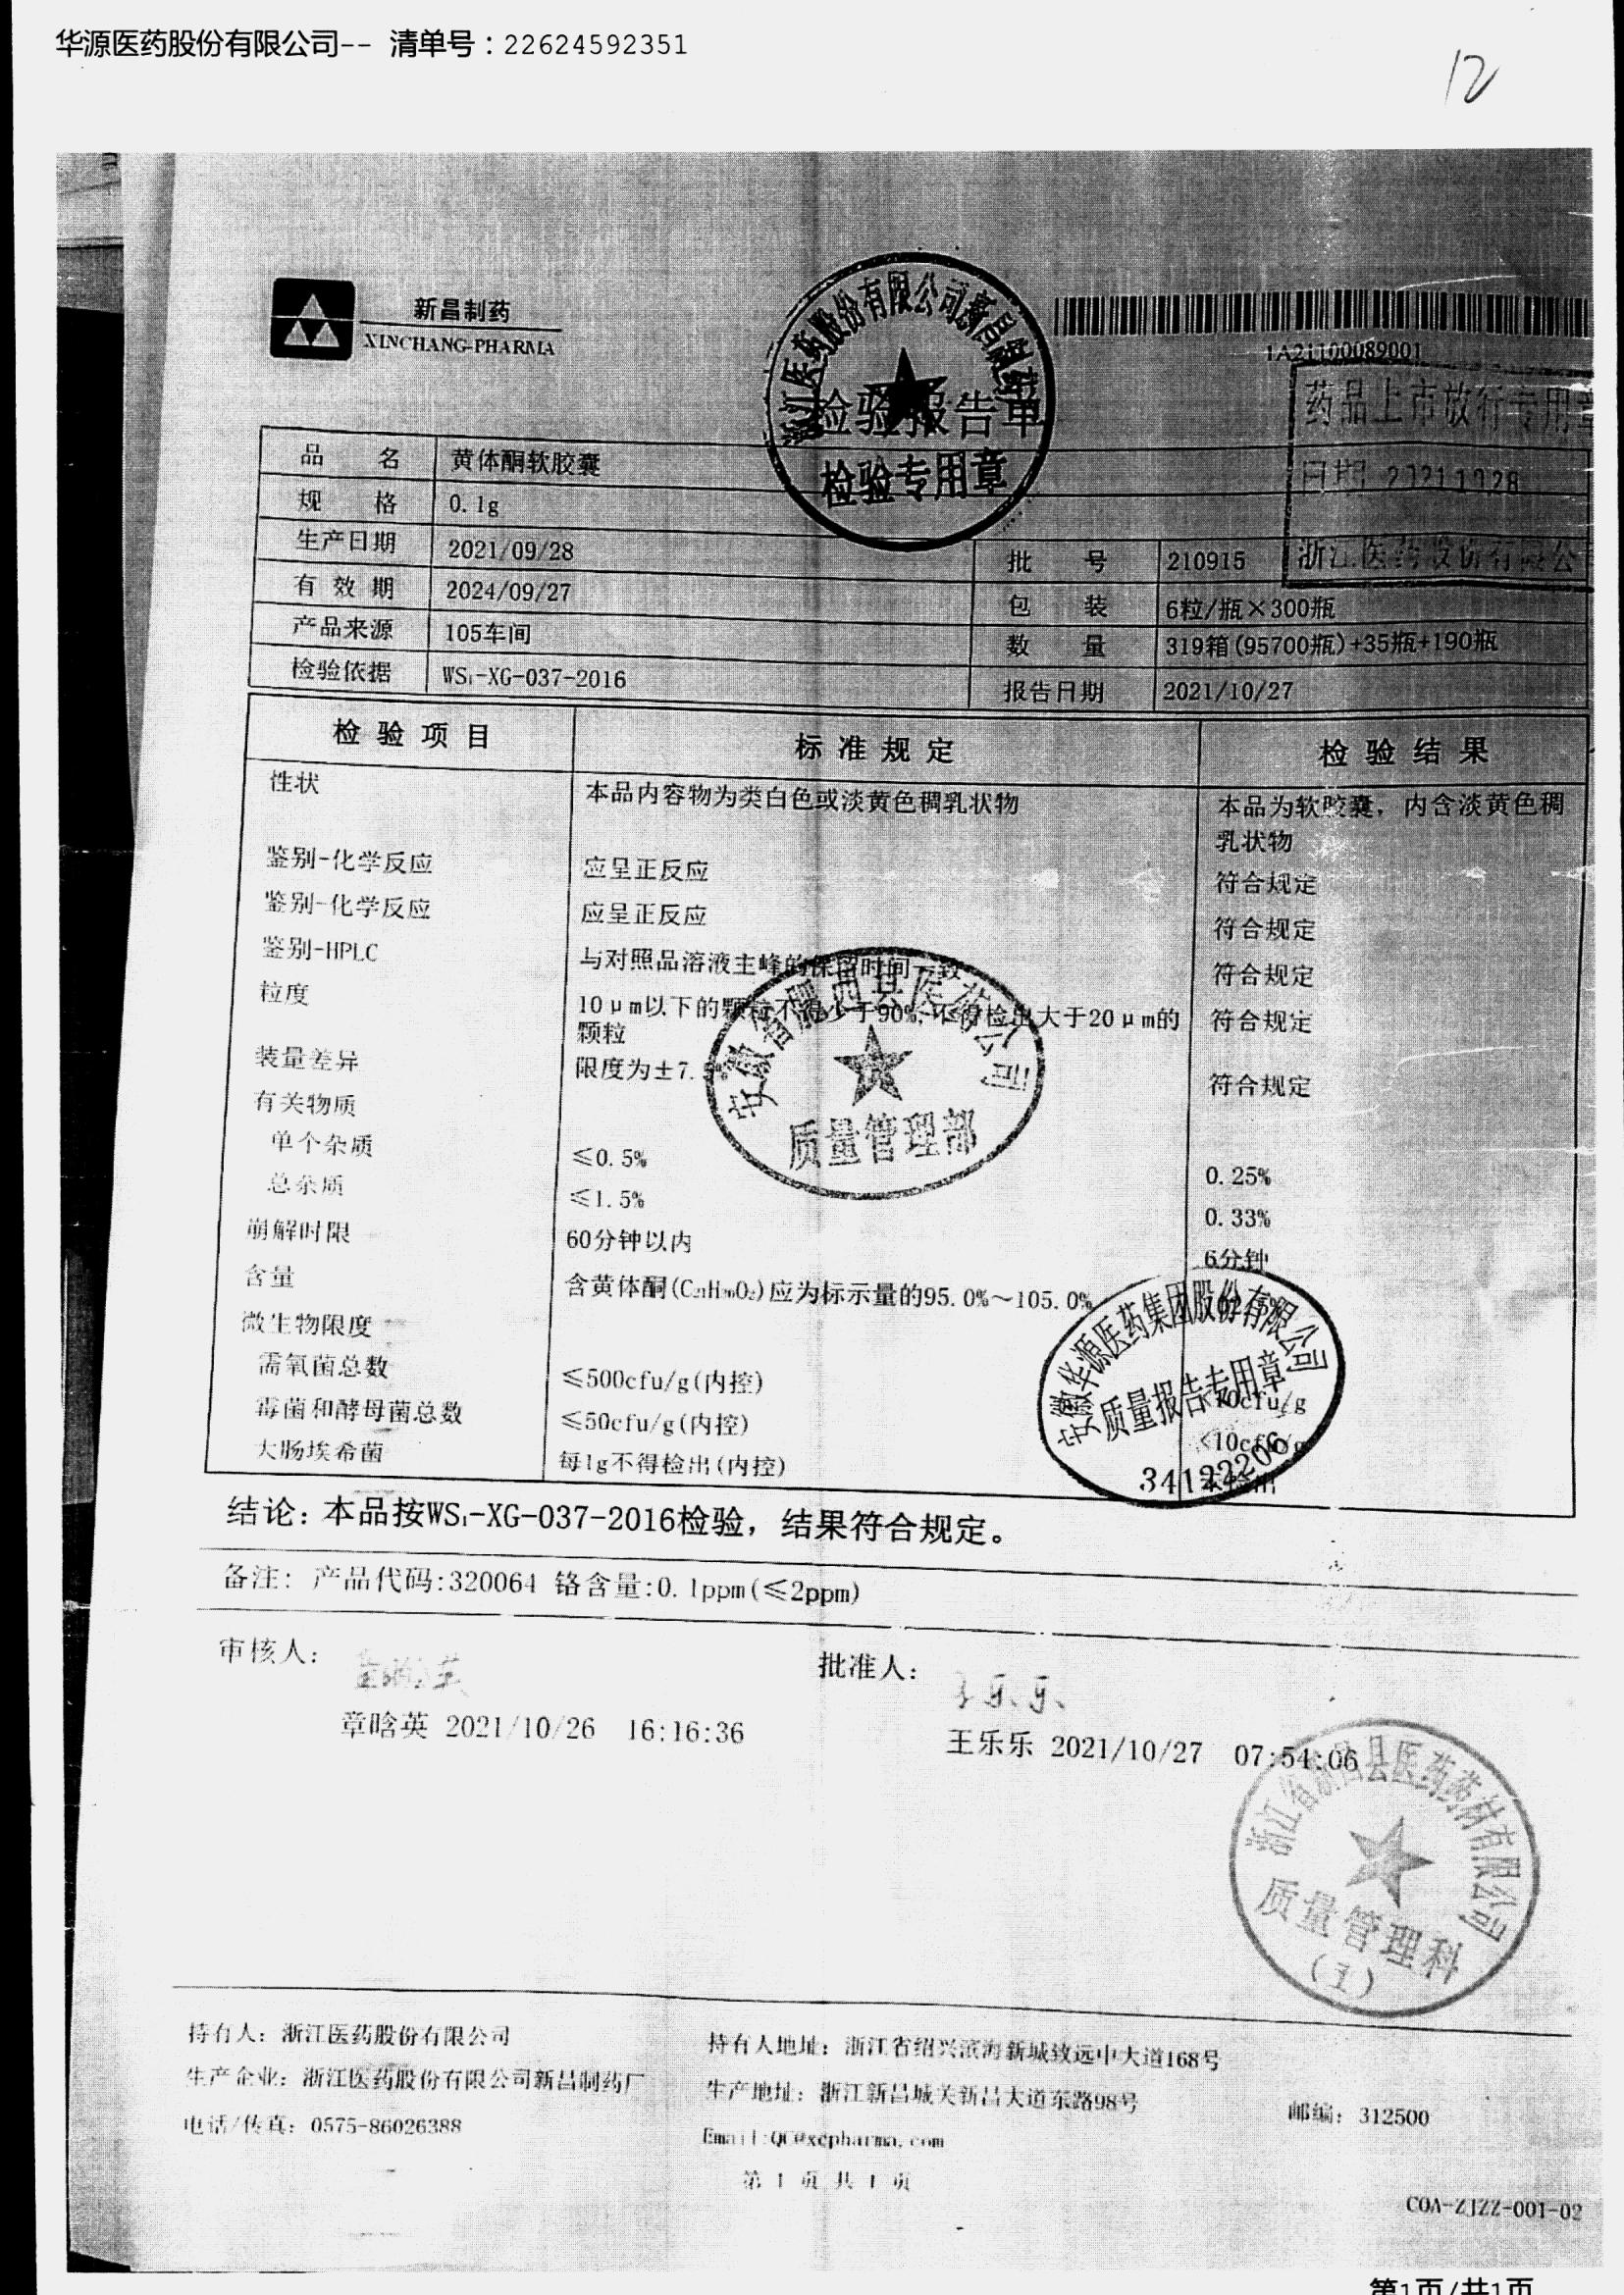 华源医药股份有限公司-- 清单号：22624592351
12
新昌制药
XINCHANG-PHARMA
浙江医药股份有限公司新昌制药
检验报告单
检验专用章
1A21100089001
药品上市放行专用章
日期 20211028
浙江医药股份有限公
品 名 黄体酮软胶囊
规 格 0.1g
生产日期 2021/09/28 批 号 210915
有效期 2024/09/27 包 装 6粒/瓶×300瓶
产品来源 105车间 数 量 319箱(95700瓶)+35瓶+190瓶
检验依据 WS₁-XG-037-2016 报告日期 2021/10/27
检验项目 标准规定 检验结果
性状 本品内容物为类白色或淡黄色稠乳状物 本品为软胶囊，内含淡黄色稠
乳状物
鉴别-化学反应 应呈正反应 符合规定
鉴别-化学反应 应呈正反应 符合规定
鉴别-HPLC 与对照品溶液主峰的保留时间一致 符合规定
粒度 10μm以下的颗粒不得少于90%,不得检出大于20μm的 符合规定
颗粒
装量差异 限度为±7. 符合规定
有关物质
单个杂质 ≤0.5% 0.25%
总杂质 ≤1.5% 0.33%
崩解时限 60分钟以内 6分钟
含量 含黄体酮(C₂₁H₃₀O₂)应为标示量的95.0%～105.0%
微生物限度
需氧菌总数 ≤500cfu/g(内控) <10cfu/g
霉菌和酵母菌总数 ≤50cfu/g(内控) <10cfu/g
大肠埃希菌 每1g不得检出(内控) 未检出
安徽省 西县医药公司
质量管理部
安徽华源医药集团股份有限公司
质量报告专用章
34122206
结论：本品按WS₁-XG-037-2016检验，结果符合规定。
备注：产品代码:320064 铬含量:0.1ppm(≤2ppm)
审核人： 批准人：
章晗英 2021/10/26 16:16:36 王乐乐 2021/10/27 07:54:06
浙江省新昌县医药药材有限公司
质量管理科
(1)
持有人：浙江医药股份有限公司 持有人地址：浙江省绍兴滨海新城致远中大道168号
生产企业：浙江医药股份有限公司新昌制药厂 生产地址：浙江新昌城关新昌大道东路98号 邮编：312500
电话/传真：0575-86026388 Email:QC@xcpharma.com
第 1 页 共 1 页
COA-ZJZZ-001-02
第1页/共1页